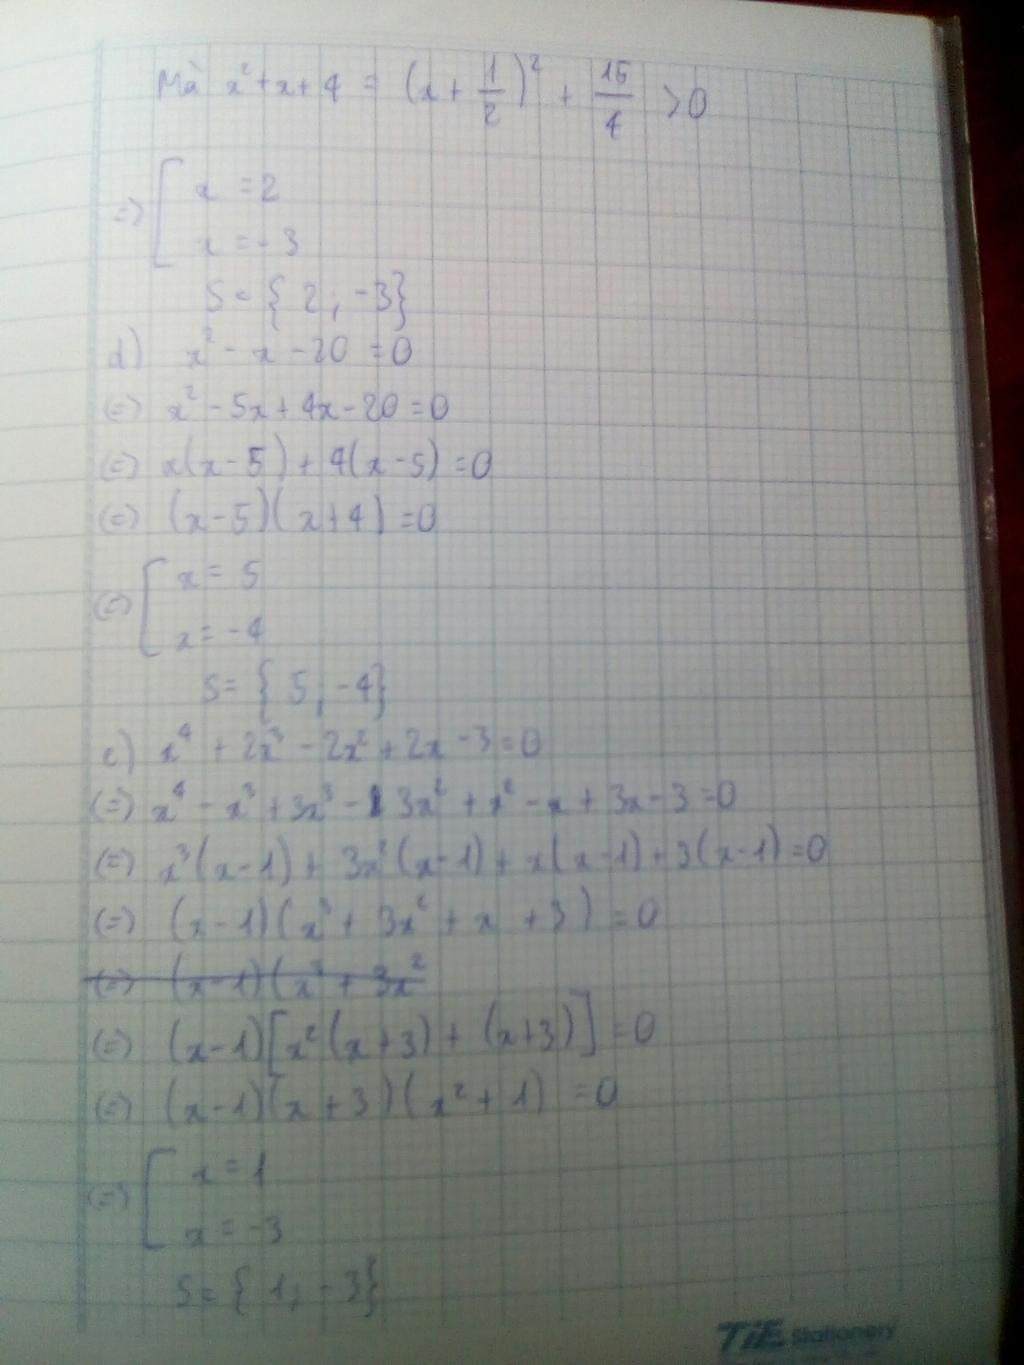 Mà x² + x + 4 = (x + 1/2)² + 15/4 > 0
=> [ x = 2
x = -3
S = { 2 ; -3}
d) x² - x - 20 = 0
(=) x² - 5x + 4x - 20 = 0
(=) x(x - 5) + 4(x - 5) = 0
(=) (x - 5)(x + 4) = 0
(=) [ x = 5
x = -4
S = { 5 ; -4}
e) x⁴ + 2x³ - 2x² + 2x - 3 = 0
(=) x⁴ - x³ + 3x³ - 3x² + x² - x + 3x - 3 = 0
(=) x³(x - 1) + 3x²(x - 1) + x(x - 1) + 3(x - 1) = 0
(=) (x - 1)(x³ + 3x² + x + 3) = 0
(=) (x - 1)(x³ + 3x²
(=) (x - 1)[x²(x + 3) + (x + 3)] = 0
(=) (x - 1)(x + 3)(x² + 1) = 0
(=) [ x = 1
x = -3
S = { 1 ; -3}
TiE Stationery